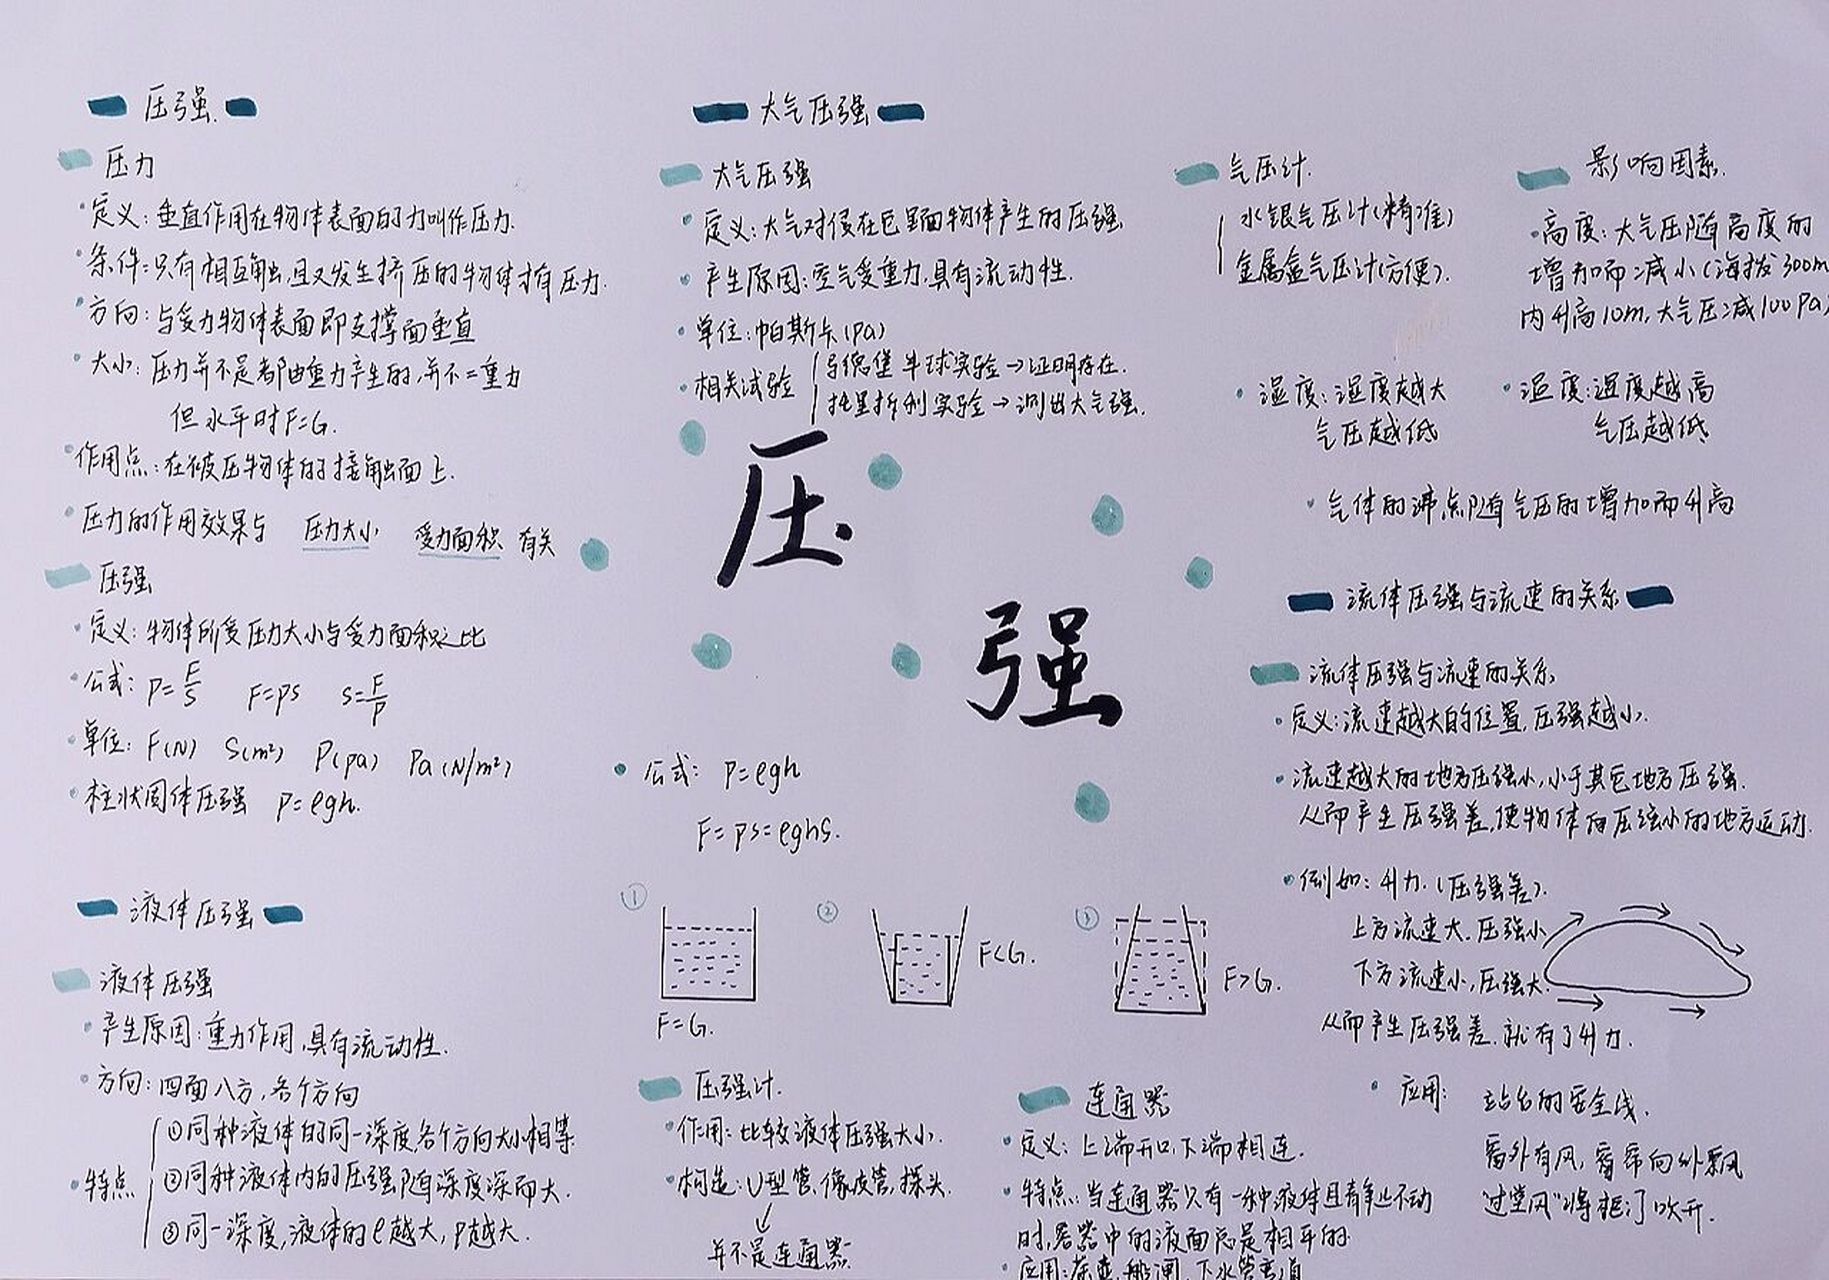 压强.
压力
定义：垂直作用在物体表面的力叫作压力.
条件：只有相互触，且又发生挤压的物体才有压力.
方向：与受力物体表面即支撑面垂直
大小：压力并不是都由重力产生的，并不=重力
但水平时F=G.
作用点：在被压物体的接触面上.
压力的作用效果与 压力大小 受力面积 有关
压强
定义：物体所受压力大小与受力面积之比
公式：P=F/S F=PS S=F/P
单位：F(N) S(m²) P(pa) Pa(N/m²)
柱状固体压强 P=ρgh.
液体压强
液体压强
产生原因：重力作用，具有流动性.
方向：四面八方，各个方向
特点
①同种液体的同一深度，各个方向大小相等
②同种液体内的压强随深度深而大.
③同一深度，液体的ρ越大，P越大.
大气压强
大气压强
定义：大气对侵在它里面物体产生的压强
产生原因：空气受重力，具有流动性.
单位：帕斯卡(pa)
相关试验
马德堡半球实验→证明存在.
托里拆利实验→测出大气强.
压
强
公式：P=ρgh
F=PS=ρghs.
①
F=G.
②
F<G.
③
F>G.
压强计.
作用：比较液体压强大小.
构造：U型管，像皮管，探头.
并不是连通器.
连通器
定义：上端开口，下端相连.
特点：当连通器只有一种液体且静止不动
时，容器中的液面总是相平的
应用：茶壶，船闸，下水管弯道
气压计.
水银气压计(精准)
金属盒气压计(方便).
影响因素.
高度：大气压随高度的
增加而减小(海拔300m
内升高10m，大气压减100Pa)
湿度：湿度越大
气压越低
温度：温度越高
气压越低
气体的沸点随气压的增加而升高
流体压强与流速的关系
流体压强与流速的关系
定义：流速越大的位置，压强越小.
流速越大的地方压强小，小于其它地方压强.
从而产生压强差，使物体向压强小的地方运动.
例如：升力.(压强差).
上方流速大，压强小
下方流速小，压强大.
从而产生压强差，就有了升力.
应用：站台的安全线.
窗外有风，窗帘向外飘
过堂风"将柜门吹开.